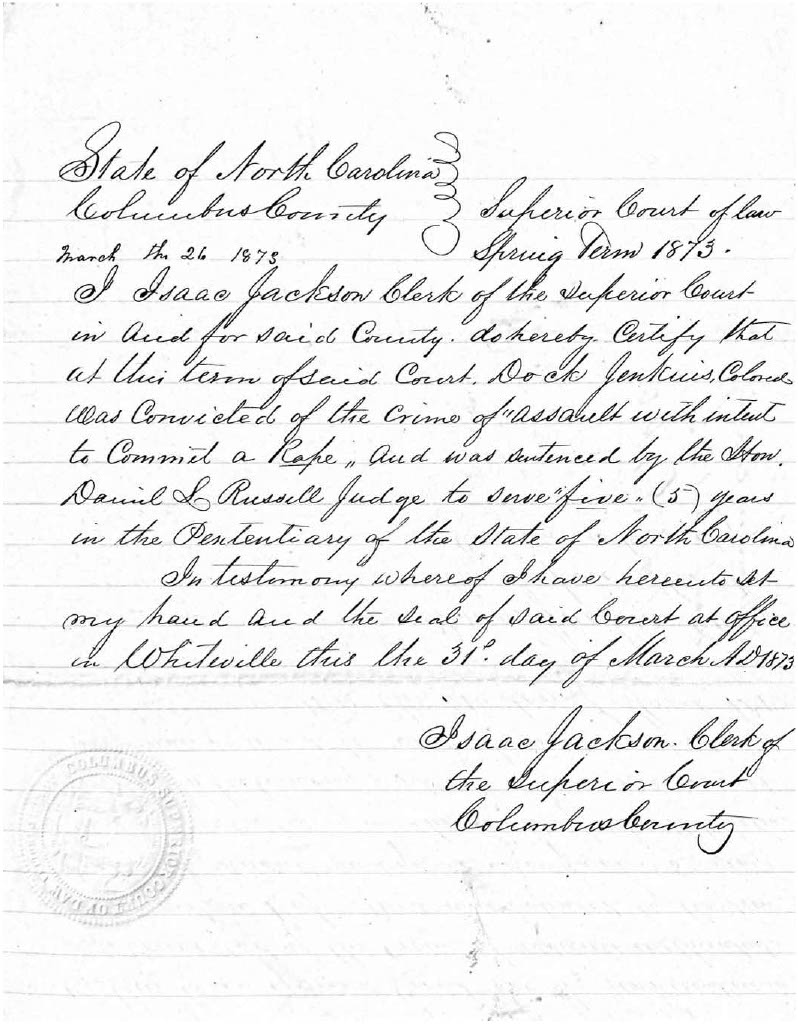 State of North Carolina
Columbus County
Superior Court of law
March th 26 1873
Spring Term 1873.
I Isaac Jackson Clerk of the Superior Court
in and for said County. do hereby Certify that
at this term of said Court. Dock Jenkins, Colored
was Convicted of the crime of "assault with intent
to Commit a Rape" and was sentenced by the Hon.
Daniel L Russell Judge to serve "five" (5) years
in the Pententiary of the State of North Carolina
In testimony whereof I have hereunto set
my hand and the seal of said Court at office
in Whiteville this the 31st day of March AD 1873
Isaac Jackson. Clerk of
the Superior Court
Columbus County
COLUMBUS SUPERIOR COURT OF LAW